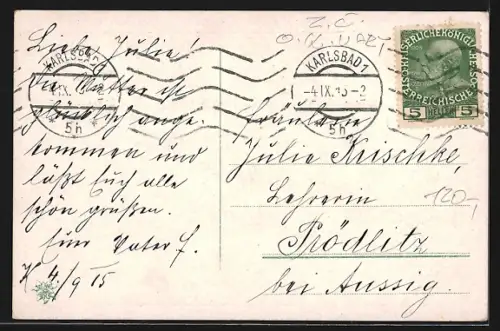 Liebe Julie!
Die Mutter ist
glücklich ange-
kommen und
läßt Euch alle
schön grüßen.
Euer Vater F.
K. 4/9 15
KARLSBAD 1
5h
KARLSBAD 1
-4 IX. 15-2
5h
KAISERLICHE KÖNIGL
ÖSTERREICHISCHE
5 5
Fräulein
Julie Krischke,
Lehrerin
Prödlitz
bei Aussig.
120,-